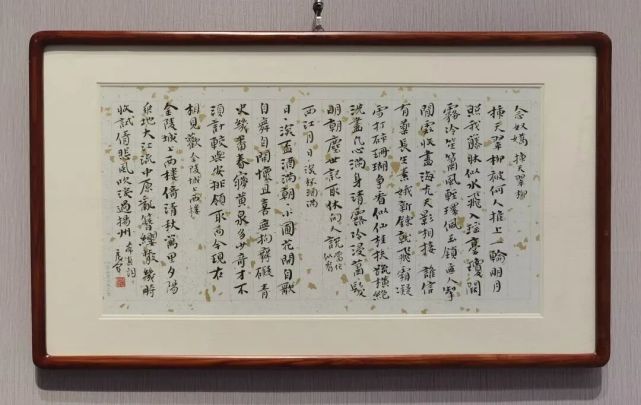 念奴嬌 插天翠柳
插天翠柳被何人推上一輪明月
照我藤牀似水飛入瑤臺瓊闕
霧冷笙簫風輕環佩玉鎖無人掣
閒雲收盡海光天影相接 誰信
有藥長生素娥新鍊就飛霜凝
雪打碎珊瑚爭看似仙桂扶疏橫絕
洗盡凡心滿身清露冷浸蕭髮
明朝塵世記取休向人說
西江月 日日深杯酒滿
日日深杯酒滿朝朝小圃花開自歌
自舞自開懷且喜無拘無礙 青
史幾番春夢黃泉多少奇才不
須計較與安排領取而今現在
相見歡 金陵城上西樓
金陵城上西樓倚清秋萬里夕陽
垂地大江流中原亂簪纓散幾時
收試倩悲風吹淚過揚州